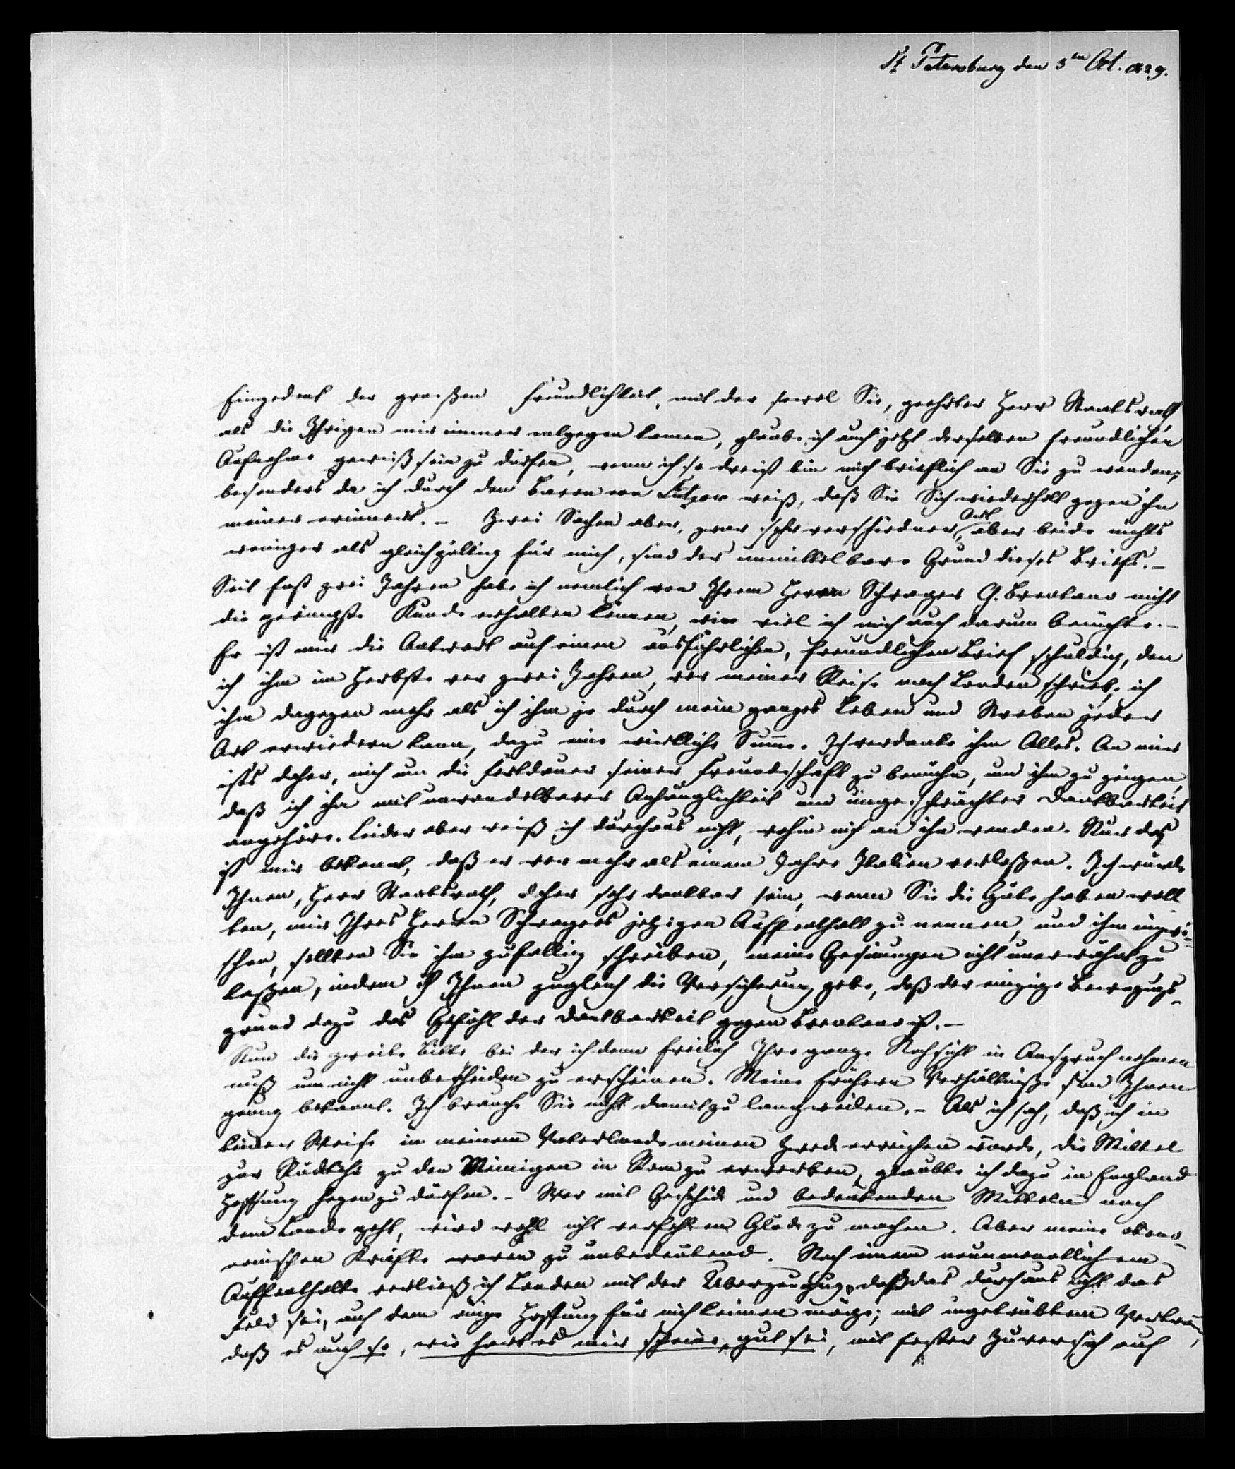 St Petersburg den 3ten Oct. 829.
Eingedenk der großen Freundlichkeit, mit der sowol Sie, geehrter Herr Staatsrath,
als die Ihrigen mir immer entgegen kamen, glaube ich auch jetzt derselben freundlichen
Aufnahme gewiß sein zu dürfen, wenn ich so dreist bin mich brieflich an Sie zu wenden,
besonders da ich durch den Baron von weiß, daß Sie Sich wiederholt gegen ihn
meiner erinnert. – Zwei Sachen aber, zwar sehr verschiedner Art, aber beide nichts
weniger als gleichgültig für mich, sind der unmittelbare Grund dieses Briefs. –
Seit fast zwei Jahren habe ich nemlich von Ihrem Herrn Schwager G. Brentano nicht
die geringste Kunde erhalten können, wie viel ich mich auch darum bemühte. –
Er ist mir die Antwort auf einen ausführlichen, freundlichen Brief schuldig, den
ich ihm im Herbste vor zwei Jahren, vor meiner Reise nach London schrieb; ich
ihm dagegen mehr als ich ihm je durch mein ganzes Leben und Streben jeder
Art erwiedern kann, dazu eine wirkliche Summe. Ich verdanke ihm Alles. An mir
ists daher, mich um die Fortdauer seiner Freundschaft zu bemühn, um ihm zu zeigen,
daß ich ihm mit unwandelbarer Anhänglichkeit und ungeschwächter Dankbarkeit
angehöre. Leider aber weiß ich durchaus nicht, wohin mich an ihn wenden. Nur das
ist mir bekannt, daß er vor mehr als einem Jahre Italien verlaßen. Ich würde
Ihnen, Herr Staatsrath, daher sehr dankbar sein, wenn Sie die Güte haben woll
ten, mir Ihres Herrn Schwagers jetzigen Auffenthalt zu nennen, und ihm inzwi-
schen, sollten Sie ihm zufällig schreiben, meine Gesinnungen nicht unerwähnt zu
laßen, indem ich Ihnen zugleich die Versicherung gebe, daß der einzige Bewegungs-
grund dazu das Gefühl der Dankbarkeit gegen Brentano ist. –
Nun die zweite Bitte bei der ich denn freilich Ihre ganze Nachsicht in Anspruch nehmen
muß um nicht unbescheiden zu erscheinen. Meine frühern Verhältniße sind Ihnen
genug bekannt. Ich brauche Sie nicht damit zu langweilen. – Als ich sah, daß ich in
keiner Weise in meinem Vaterlande meinen Zweck erreichen würde, die Mittel
zur Rückkehr zu den Meinigen in Rom zu erwerben, glaubte ich dazu in England
Hoffnung hegen zu dürfen. – Wer mit Geschick und bedeutenden Mitteln nach
dem Lande geht, wird wohl nicht verfehlen Glück zu machen. Aber meine
Kräfte waren zu unbedeutend. Nach einem neunmonatlichem
Auffenthalte verließ ich London mit der Überzeugung, daß das durchaus nicht das
Feld sei, auf dem einige Hoffnung für mich keimen möge; mit ungetrübtem Vertraun,
daß es auch so, wie hart es mir scheine, gut sei, mit fester Zuversicht auf